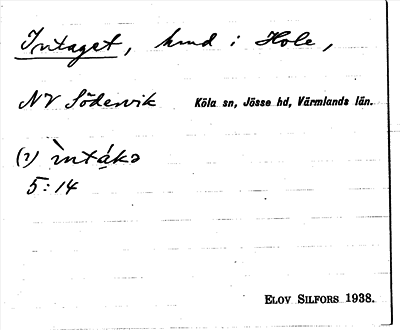 Intaget, hmd i Hole,
NV Södervik Köla sn, Jösse hd, Värmlands län.
(?) ìntákɔ
5:14
ELOV SILFORS 1938.